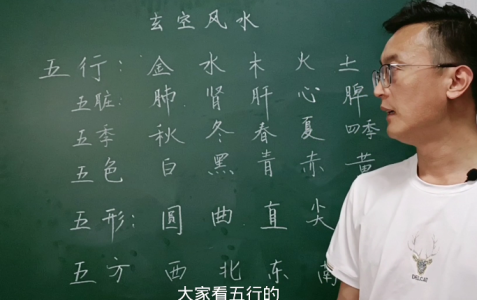 玄空风水
五行：金 水 木 火 土
五脏：肺 肾 肝 心 脾
五季 秋 冬 春 夏 四季
五色 白 黑 青 赤 黄
五形：圆 曲 直 尖
五方 西 北 东 南
大家看五行的
DELCAT